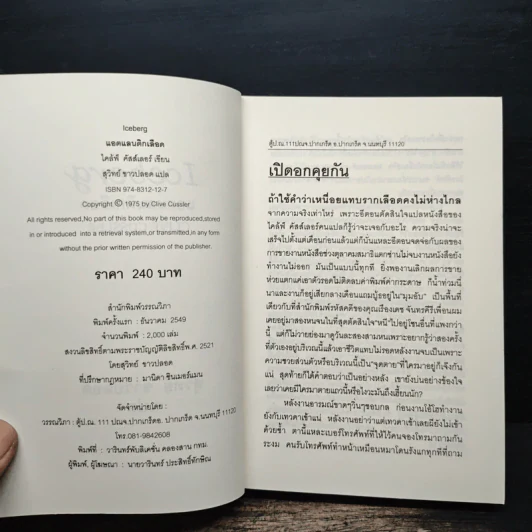 Iceberg
แอตแลนติกเลือด
ไคล์ฟ์ คัสส์เลอร์ เขียน
สุวิทย์ ขาวปลอด แปล
ISBN 974-8312-12-7
Copyright © 1975 by Clive Cussler
All rights reserved,No part of this book may be reproduced,stored
in or introduced into a retrieval system,or transmitted,in any form
without the prior written permission of the publisher.
ราคา 240 บาท
สำนักพิมพ์วรรณวิภา
พิมพ์ครั้งแรก : ธันวาคม 2549
จำนวนพิมพ์ : 2,000 เล่ม
สงวนลิขสิทธิ์ตามพระราชบัญญัติลิขสิทธิ์ พ.ศ. 2521
โดยสุวิทย์ ขาวปลอด
ที่ปรึกษากฎหมาย : มานิดา ซินเมอร์แมน
จัดจำหน่ายโดย :
วรรณวิภา : ตู้ ปณ. 111 ปณจ.ปากเกร็ด อ. ปากเกร็ด จ.นนทบุรี 11120
โทร.081-9842608
พิมพ์ที่ : วารินทร์พับลิเคชั่น คลองสาน กทม.
ผู้พิมพ์, ผู้โฆษณา : นายวารินทร์ ประสิทธิ์ทักษิณ
ตู้ป.ณ.111ปณจ.ปากเกร็ด อ.ปากเกร็ด จ.นนทบุรี 11120
เปิดอกคุยกัน
ถ้าใช้คำว่าเหนื่อยแทบรากเลือดคงไม่ห่างไกล
จากความจริงเท่าไหร่ เพราะอีตอนตัดสินใจแปลหนังสือของ
ไคล์ฟ์ คัสส์เลอร์คนแปลก็รู้ว่าจะเจอกับอะไร ความจริงน่าจะ
เสร็จไปตั้งแต่เดือนก่อนแล้วแต่ก็นั่นแหละอีตอนจดจ่อกับผลของ
การขายงานหนังสือช่วงตุลาคมสมาธิแตกซ่านไม่จบงานหนังสือยัง
ทำงานไม่ออก มันเป็นแบบนี้ทุกที ยิ่งพองานเลิกผลการขาย
ห่วยแตกแค่เอาตัวรอดไม่ติดลบค่าพิมพ์ค่ากระดาษ ก็น้ำท่วมนี่
นาและงานก็อยู่เสียกลางเดือนแถมบู้ธอยู่ใน“มุมอับ” เป็นพื้นที่
เดียวกับที่สำนักพิมพ์รหัสคดีของคุณเรืองเดช จันทรคีรีเพื่อนผม
เคยอยู่มาสองหนจนในที่สุดตัดสินใจ“หนี”ไปอยู่โซนอื่นที่แพงกว่า
นี้ แต่ก็ไม่วายย่องมาดูวันละสองสามหนเพราะอยากรู้ว่าสองครั้ง
ที่ตัวเองอยู่บริเวณนี้แล้วเอาชีวิตแทบไม่รอดหลังงานจบเป็นเพราะ
ความซวยส่วนตัวหรือบริเวณนี้เป็น“จุดตาย”ที่ใครมาอยู่ก็เจ๊งกัน
แน่ สุดท้ายก็ได้คำตอบว่าเป็นอย่างหลัง เขายังบ่นอย่างข้องใจ
เลยว่าเคยมีใครมาตายแถวนี้หรือไงวะมันถึงเฮี้ยนนัก?
หลังงานอารมณ์ขาดๆวิ่นๆชอบกล ก่อนงานโอ้โธทำงาน
ยังกับเทวดาเข้าแน่ หลังงานอย่าว่าแต่เทวดาเข้าเลยผียังไม่เข้า
ด้วยซ้ำ ตานี้แหละเบอร์โทรศัพท์ที่ให้ไว้คนจองโทรมาถามกัน
ระงม คนรับโทรศัพท์ทำหน้าเหมือนหมาโดนรังแกทุกทีที่ถาม